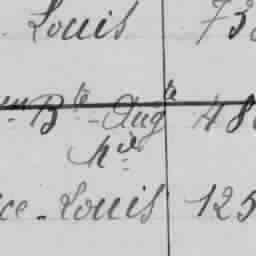 Louis 73
Bte-Augte 48
hie
ce-Louis 125